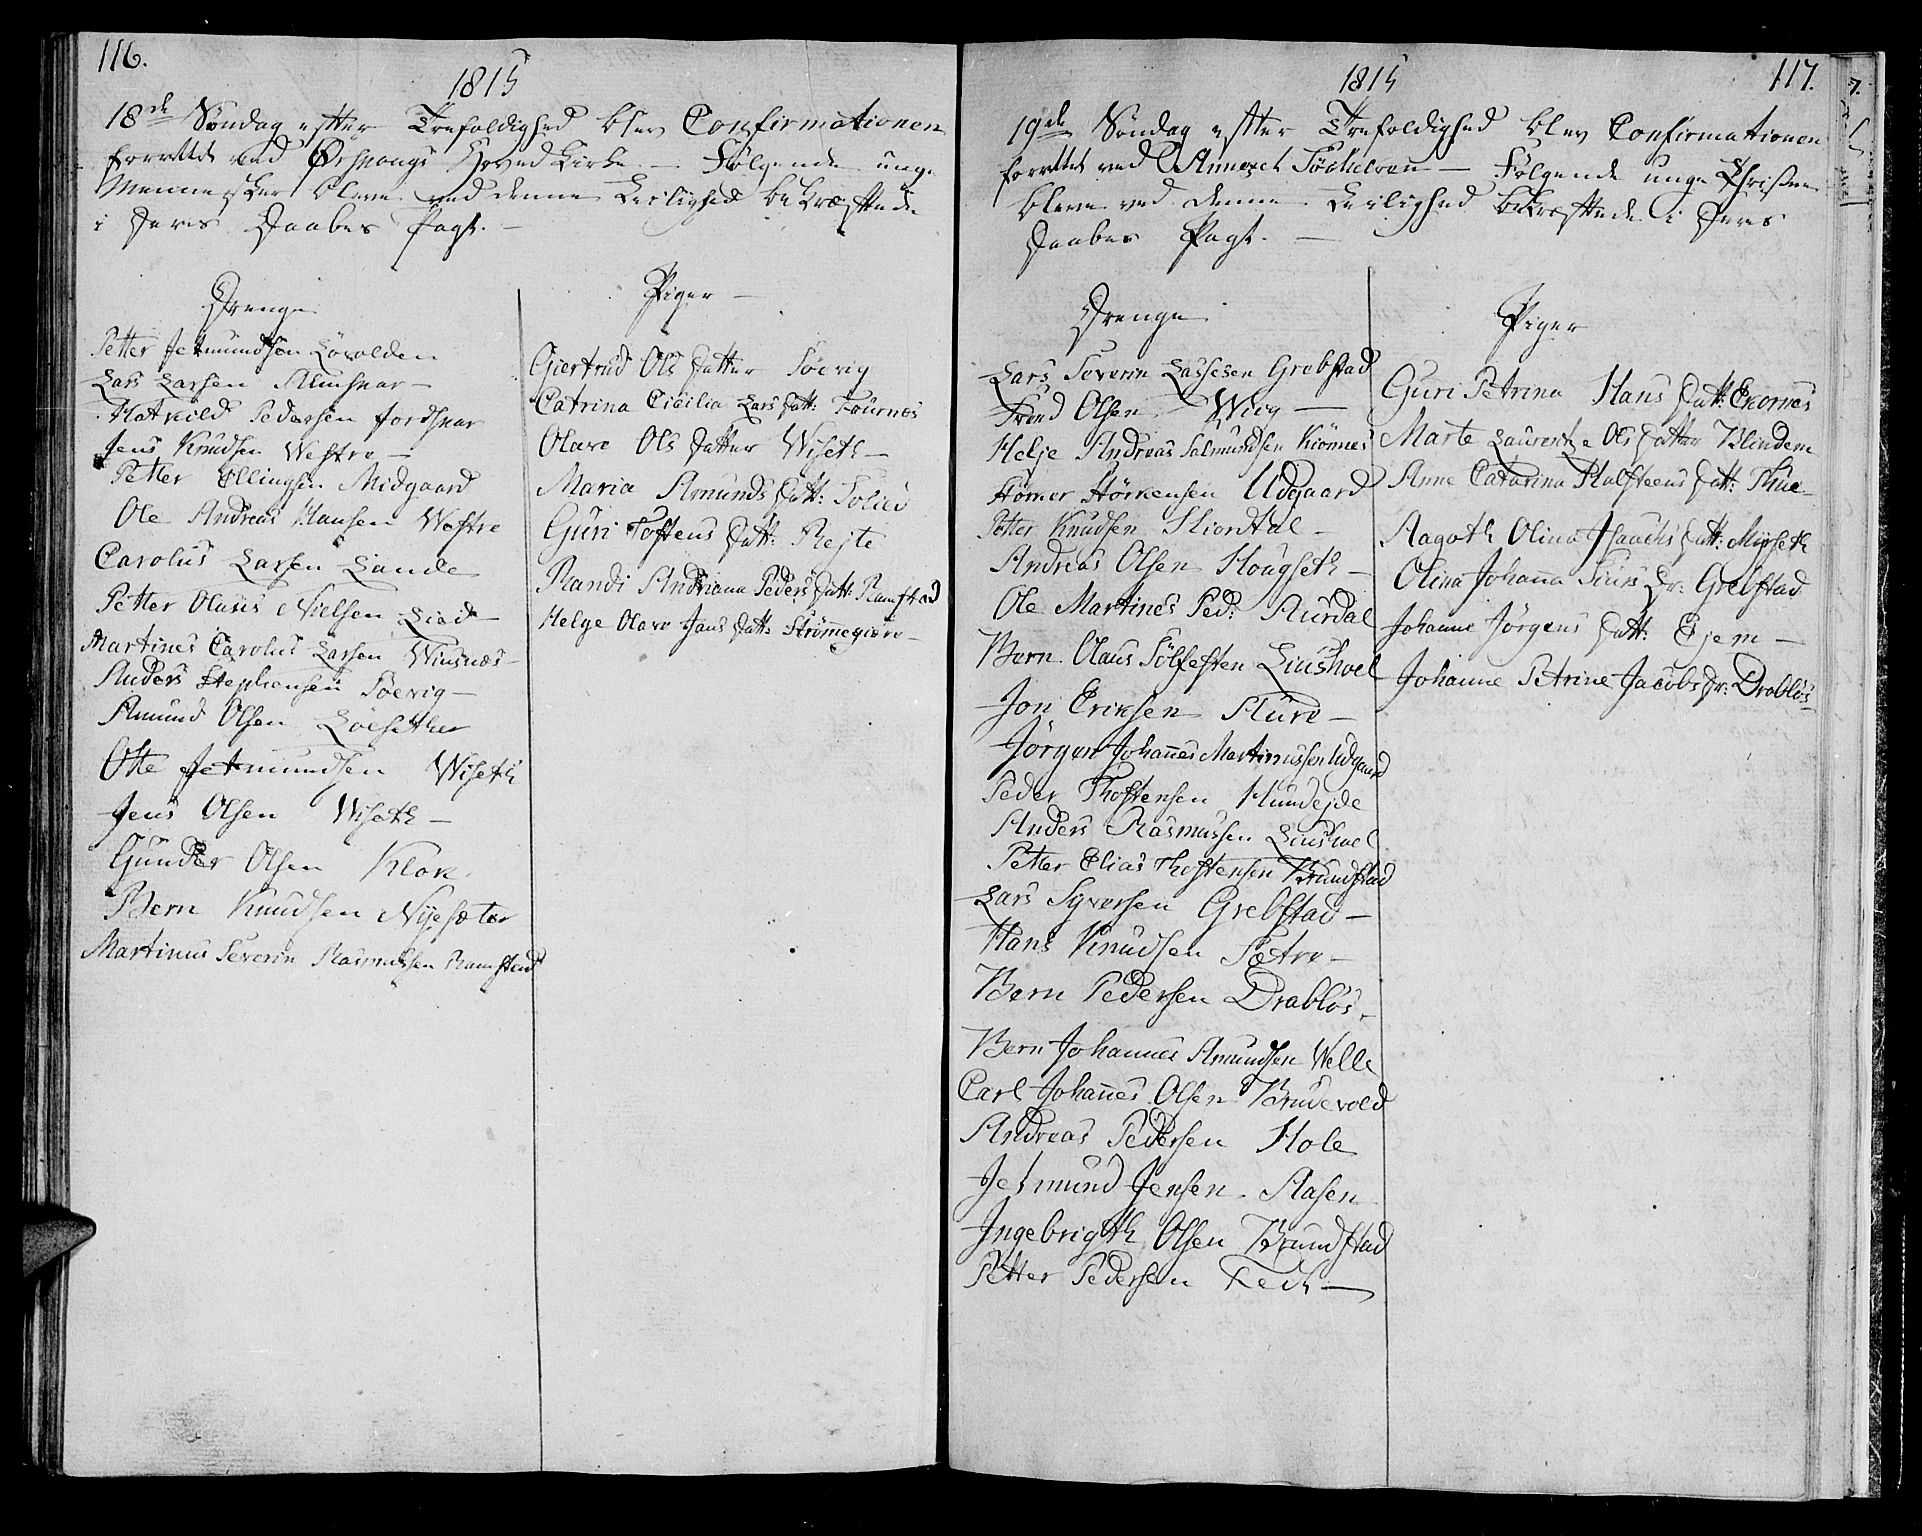 116.
1815
18de Søndag efter Trefoldighed blev Confirmationen
forrettet ved Ørschougs Hoved Kirke — Følgende unge
Mennesker bleve ved denne Leilighed bekræftede
i deres Daabes Pagt. —
Drenge
Petter Jetmundsen Løvolden
Lars Larsen Almsnar —
Hatkild Pedersen Jordsnar
Jens Knudsen Westre —
Petter Ellingsen Midgaard
Ole Andreas Hansen Westre
Carolus Larsen Lande
Petter Olaus Nielsen Liad —
Martines Carolus Larsen Wiusnæs —
Anders Stephensen Søevig —
Amund Olsen Løesether
Otte Jetmundsen Wiseth
Jens Olsen Wiseth —
Gunder Olsen Klok
Bern Knudsen Nysæter
Martinus Severin Rasmussen Ramstad
Piger —
Giertrud Ols datter Søevig
Catrina Cicilia Lars datt: Tournes
Olave Ols datter Wiseth —
Maria Amunds datt: Solied
Guri Tostens datt: Rejte
Randi Andriana Peders datt: Ramstad
Helge Olave Jans datt: Strømegiære —
117.
1815
19de Søndag efter Trefoldighed blev Confirmationen
forrettet ved Annexet Söchelven — Følgende unge Christne
bleve ved denne Leilighed bekræftede i deres
Daabes Pagt. —
Drenge
Lars Severin Lassesen Grebstad
Trond Olsen Wiig —
Helje Andreas Salmundsen Kiørnes
Størner Størkensen Udgaard
Petter Knudsen Skiortdal —
Andreas Olsen Hougseth —
Ole Martines Ped: Aurdal
Bern Olaus Sølfesten Liushoel
Jon Eriksen Aure —
Jørgen Johannes Martinussen Udgaard
Peder Thostensen Hundejde
Anders Rasmussen Liushoel
Petter Elias Thostensen Brundstad
Lars Syversen Grebstad —
Hans Knudsen Sætre —
Bern Pedersen Drabløs —
Bern Johannes Amundsen Welle
Carl Johannes Olsen Brudevold
Andreas Pedersen Hole
Jetmund Jensen Aasen
Ingebrigth Olsen Brundstad
Petter Pedersen Tech —
Piger
Guri Petrina Hans datt: Ekornes
Marte Laurentze Ols datter Blindem
Anne Catarina Halsteens datt:
Aagoth Olina Isaachs datt: Miøseth
Olina Johanna Siurs Dr: Grebstad
Johanne Jørgens datt: Ejem —
Johanne Petrine Jacobs Dr: Drabløs —